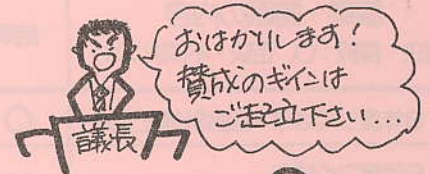 おはかりします!
賛成のギインは
ご起立下さい...
議長